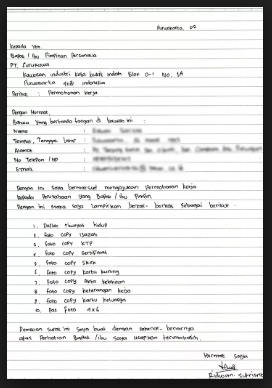 Purwakarta,
Kepada Yth.
Bapak / Ibu Pimpinan Personalia
PT.
Kawasan Industri Kota Bukit Indah Blok D-1 No.
Purwakarta Indonesia
Perihal : Permohonan Kerja
Dengan Hormat,
yang bertanda tangan di bawah ini :
Nama :
Tempat, Tanggal Lahir :
Alamat :
No Telepon / HP :
Email :
Dengan ini saya bermaksud mengajukan Permohonan kerja
kepada Perusahaan yang Bapak / Ibu Pimpin.
Dengan ini saya lampirkan berkas - berkas sebagai berikut :
1. Daftar riwayat hidup
2. foto copy Ijazah
3. foto copy KTP
4. foto copy Sertifikat
5. foto copy SKCK
6. foto copy kartu kuning
7. foto copy
8. foto copy keterangan
9. foto copy kartu keluarga
10. Pas Foto 4x6
Demikian surat ini saya buat dengan sebenar - benarnya
atas Perhatian Bapak / Ibu saya ucapkan terimakasih.
Hormat Saya